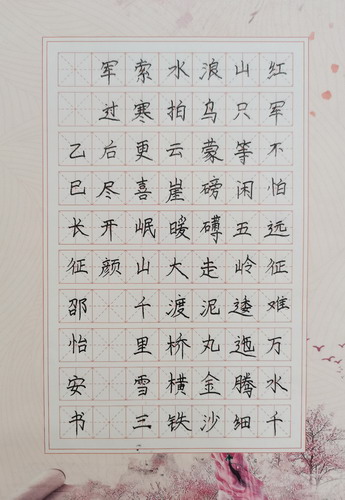 红军不怕远征难万水千
山只等闲五岭逶迤腾细
浪乌蒙磅礴走泥丸金沙
水拍云崖暖大渡桥横铁
索寒更喜岷山千里雪三
军过后尽开颜
乙巳长征邵怡安书